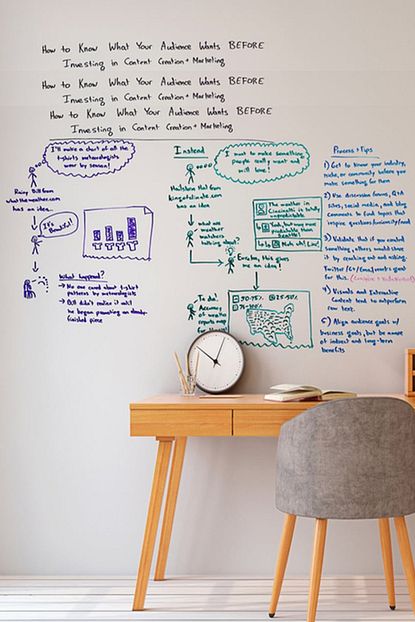 How to Know What Your Audience Wants BEFORE
Investing in Content Creation + Marketing
How to Know What Your Audience Wants BEFORE
Investing in Content Creation + Marketing
How to Know What Your Audience Wants BEFORE
Investing in Content Creation + Marketing
I'll make a chart of all the
t-shirts meteorologists
wore by season!
Rainy Bill from
whatheweather.com
has an idea...
I'm
Beautiful!
What happened?
→ No one cared about t-shirt
patterns by meteorologists
→ Bill didn't realize it until
he began promoting an
finished piece
Instead
I want to make something
people really want and
will love!
from
kingofclimate.com
has an idea
what are
weather
watchers
talking about?
The weather in
Cincinnati is totally
unpredictable
Yeah, but way more
predictable than
Seattle
Nuh uh! Low!
Eureka, this gives
me an idea!
To do:
Accuracy
of weather
reports map
50-75%
25-50%
75-100%
Process + Tips
1) Get to know your industry,
niche, or community before you
make something for them
2) Use discussion forums, Q+A
sites, social media, and blog
comments to find topics that
inspire questions/curiosity/need
3) Validate that if you create
something, others would share
it by reaching out and asking.
Twitter/G+/Email works great
for this.
4) Visuals and interactive
content tend to outperform
raw text.
5) Align audience goals w/
business goals, but be aware
of indirect and long-term
benefits